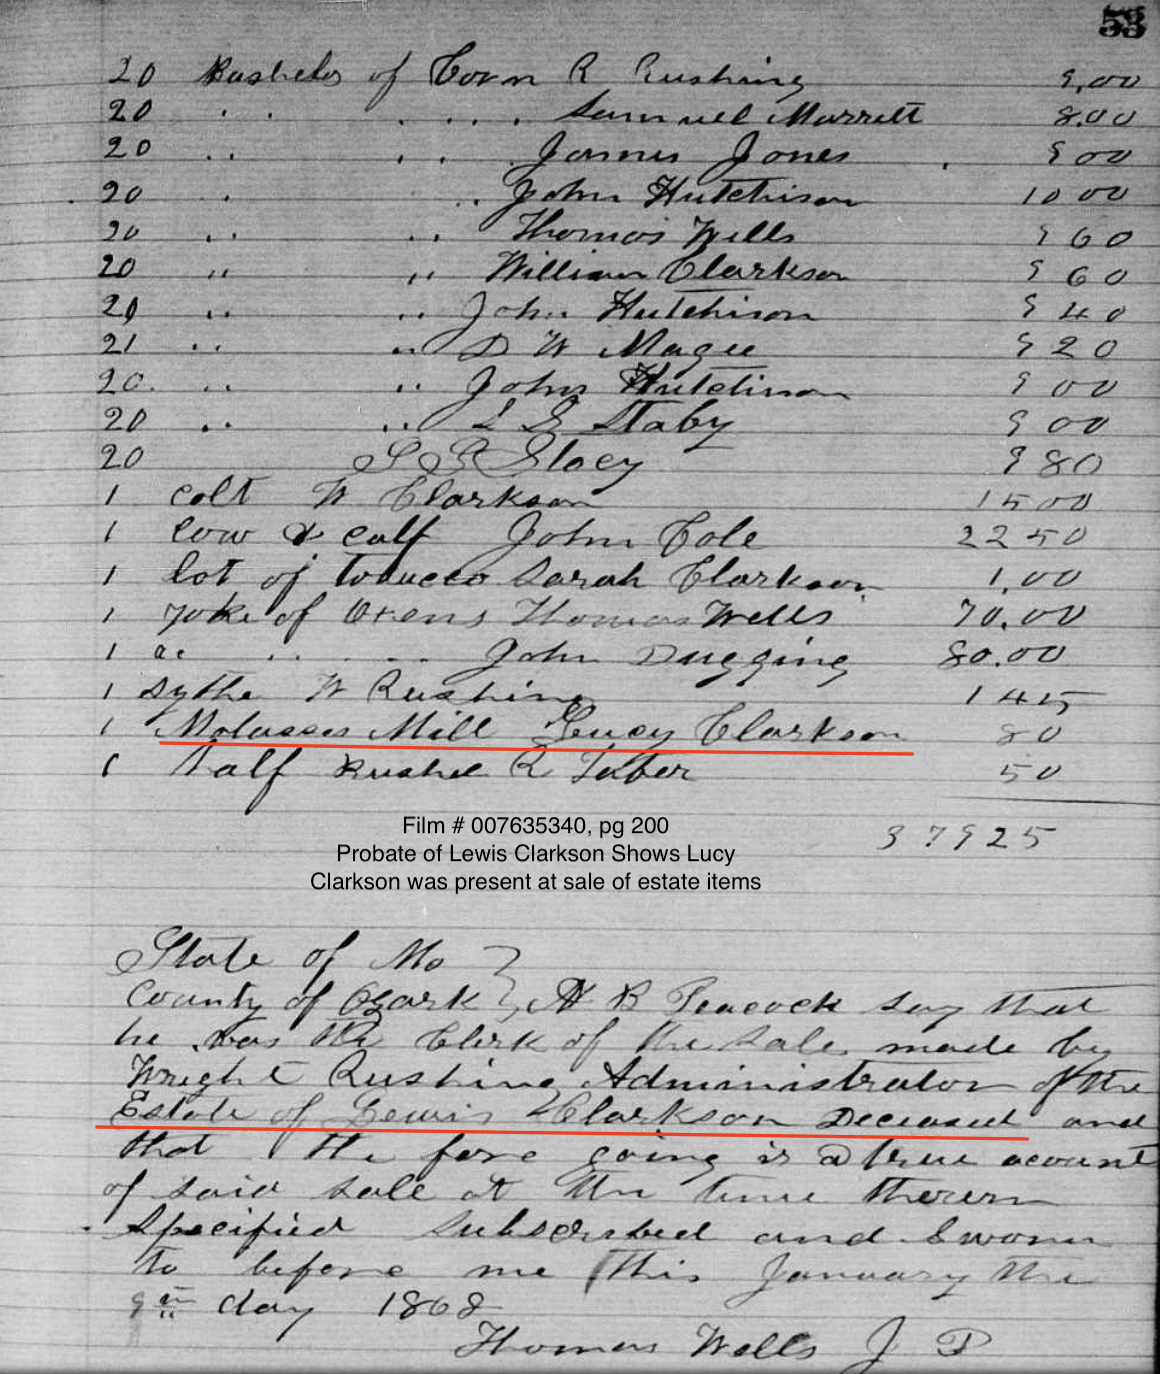 53
20 Bushels of Corn R Rushing 9,00
20 " " " " Samuel Marrett 8.00
20 " " " James Jones 9 00
20 " " John Hutchison 10 00
20 " " Thomas Wells 9 60
20 " " William Clarkson 9 60
20 " " John Hutchison 9 40
21 " " D W Magee 9 20
20 " " John Hutchinson 9 00
20 " " L S Staby 9 00
20 9 80
1 colt W Clarkson 15 00
1 cow & calf John Cole 22 50
1 lot of tobacco Sarah Clarkson 1,00
1 yoke of Oxens Thomas Wells 70.00
1 " " John Dugging 80.00
1 sythe W Rushing 1 45
1 Molasses Mill Lucy Clarkson 80
1 half Bushel R Tuber 50
Film # 007635340, pg 200
379 25
Probate of Lewis Clarkson Shows Lucy
Clarkson was present at sale of estate items
State of Mo
County of Ozark } A B Peacock say that
he was the Clerk of the sale made by
Wright Rushing Administrator of the
Estate of Lewis Clarkson Deceased and
that the fore going is a true acount
of said sale at the time therein
specified subscribed and sworn
to before me this January the
9th day 1868
Thomas Wells J P